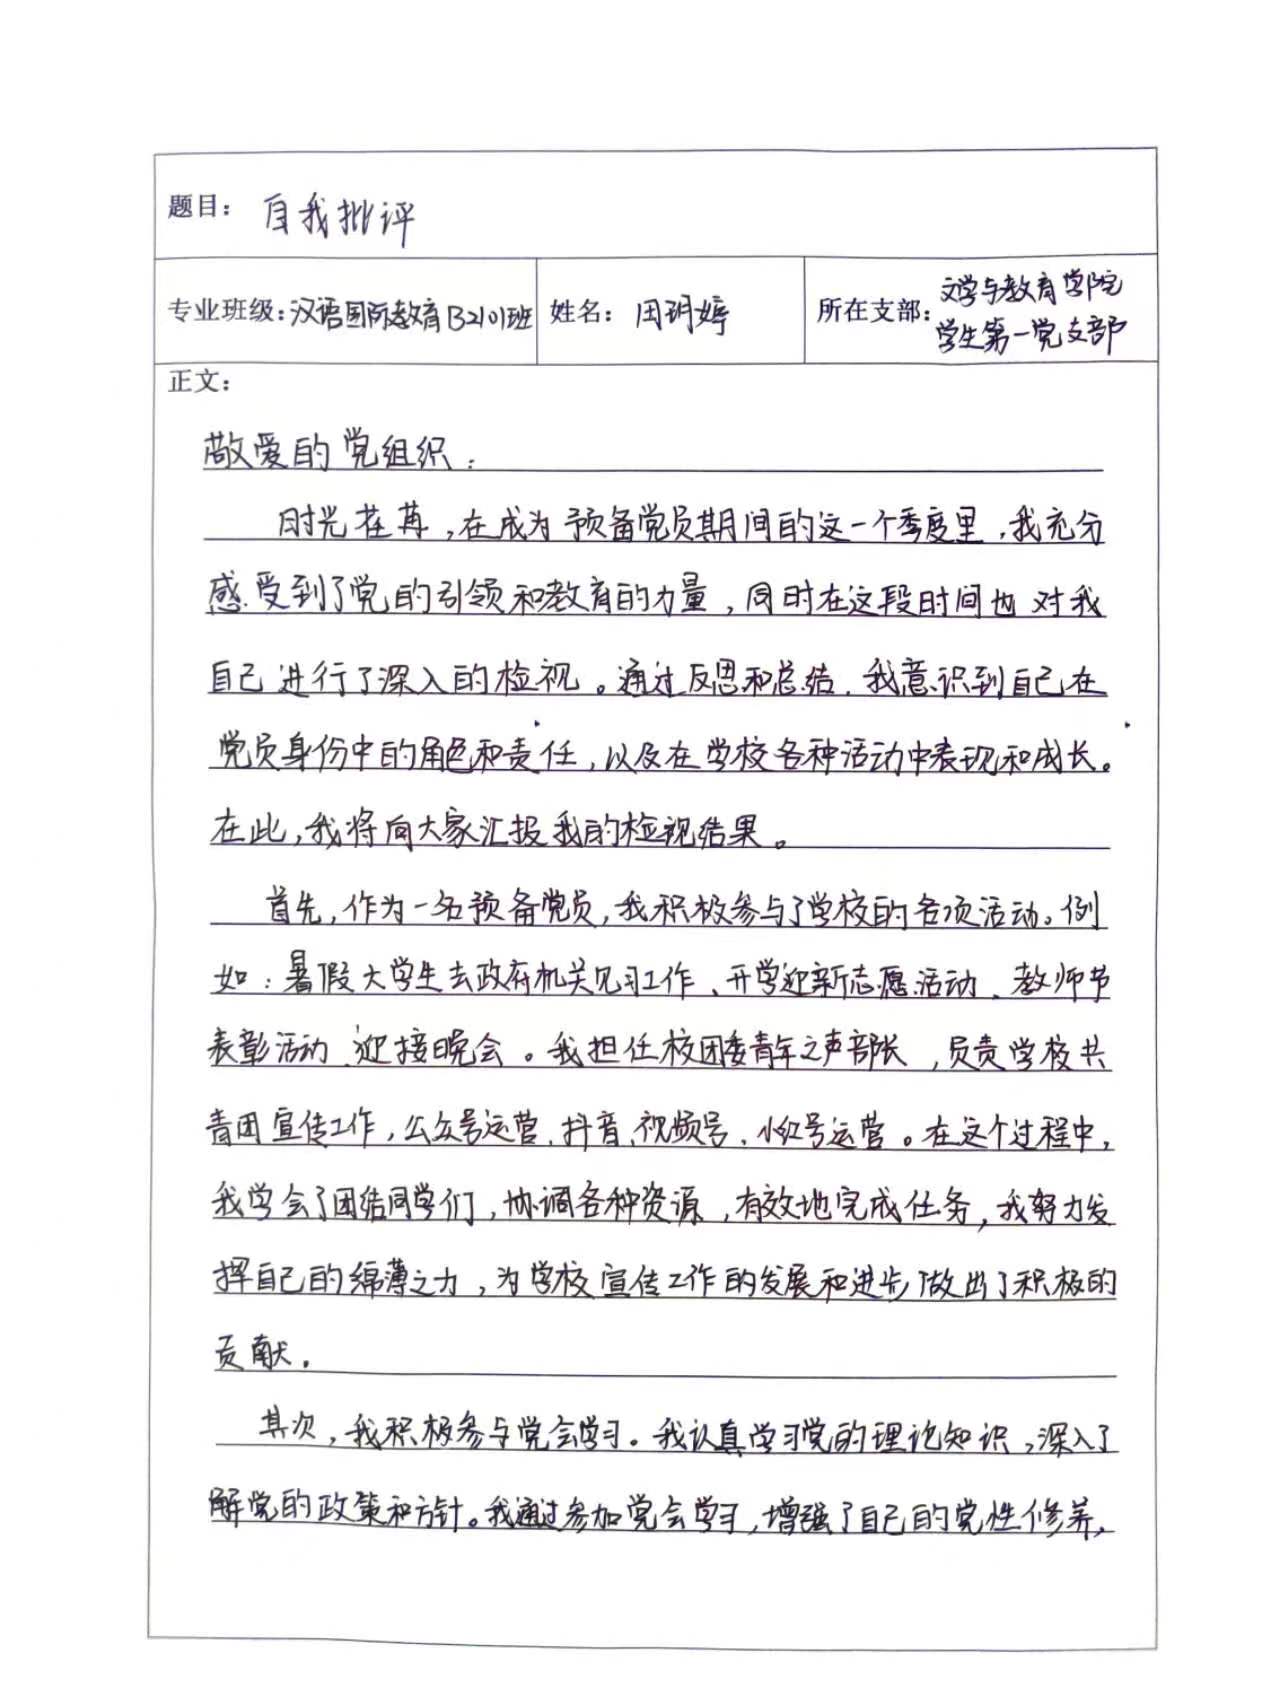 题目: 自我批评
专业班级:汉语国际教育B2101班 姓名: 田玥婷 所在支部: 文学与教育学院
学生第一党支部
正文:
敬爱的党组织:
时光荏苒,在成为预备党员期间的这一个季度里,我充分
感受到了党的引领和教育的力量,同时在这段时间也对我
自己进行了深入的检视。通过反思和总结,我意识到自己在
党员身份中的角色和责任,以及在学校各种活动中表现和成长。
在此,我将向大家汇报我的检视结果。
首先,作为一名预备党员,我积极参与了学校的各项活动。例
如:暑假大学生去政府机关见习工作、开学迎新志愿活动、教师节
表彰活动、迎接晚会。我担任校团委青年之声部长,负责学校共
青团宣传工作,公众号运营、抖音、视频号、小红号运营。在这个过程中,
我学会了团结同学们,协调各种资源,有效地完成任务,我努力发
挥自己的绵薄之力,为学校宣传工作的发展和进步做出了积极的
贡献。
其次,我积极参与党会学习。我认真学习党的理论知识,深入了
解党的政策和方针。我通过参加党会学习,增强了自己的党性修养,